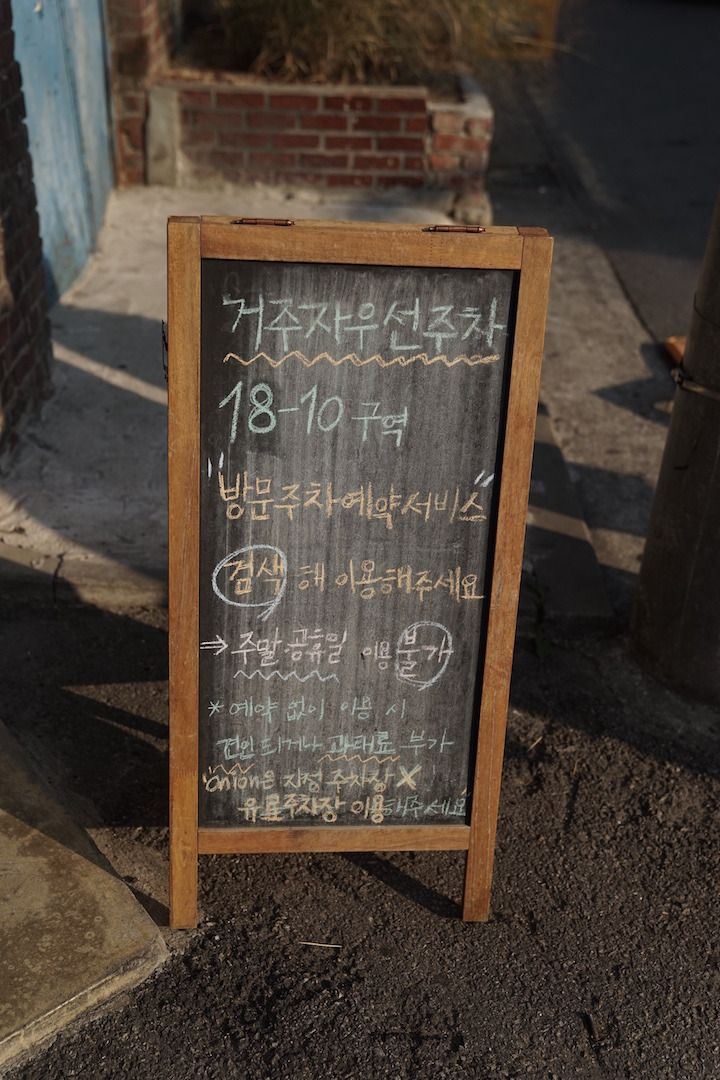 거주자우선주차
18-10 구역
"방문주차예약서비스"
검색 해 이용해주세요
⇒ 주말 공휴일 이용 불가
* 예약 없이 이용 시
견인 되거나 과태료 부가
'onion은 지정 주차장 X
유료주차장 이용해주세요